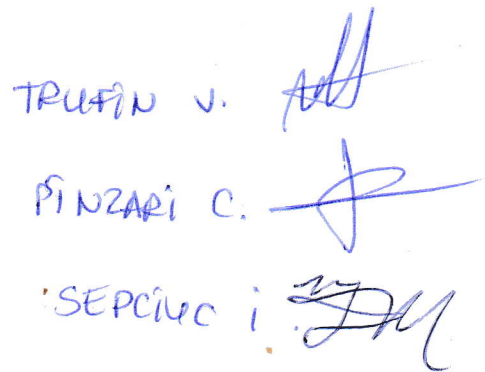 TRUFiN V.
PiNZARi C.
SEPCiUC i.